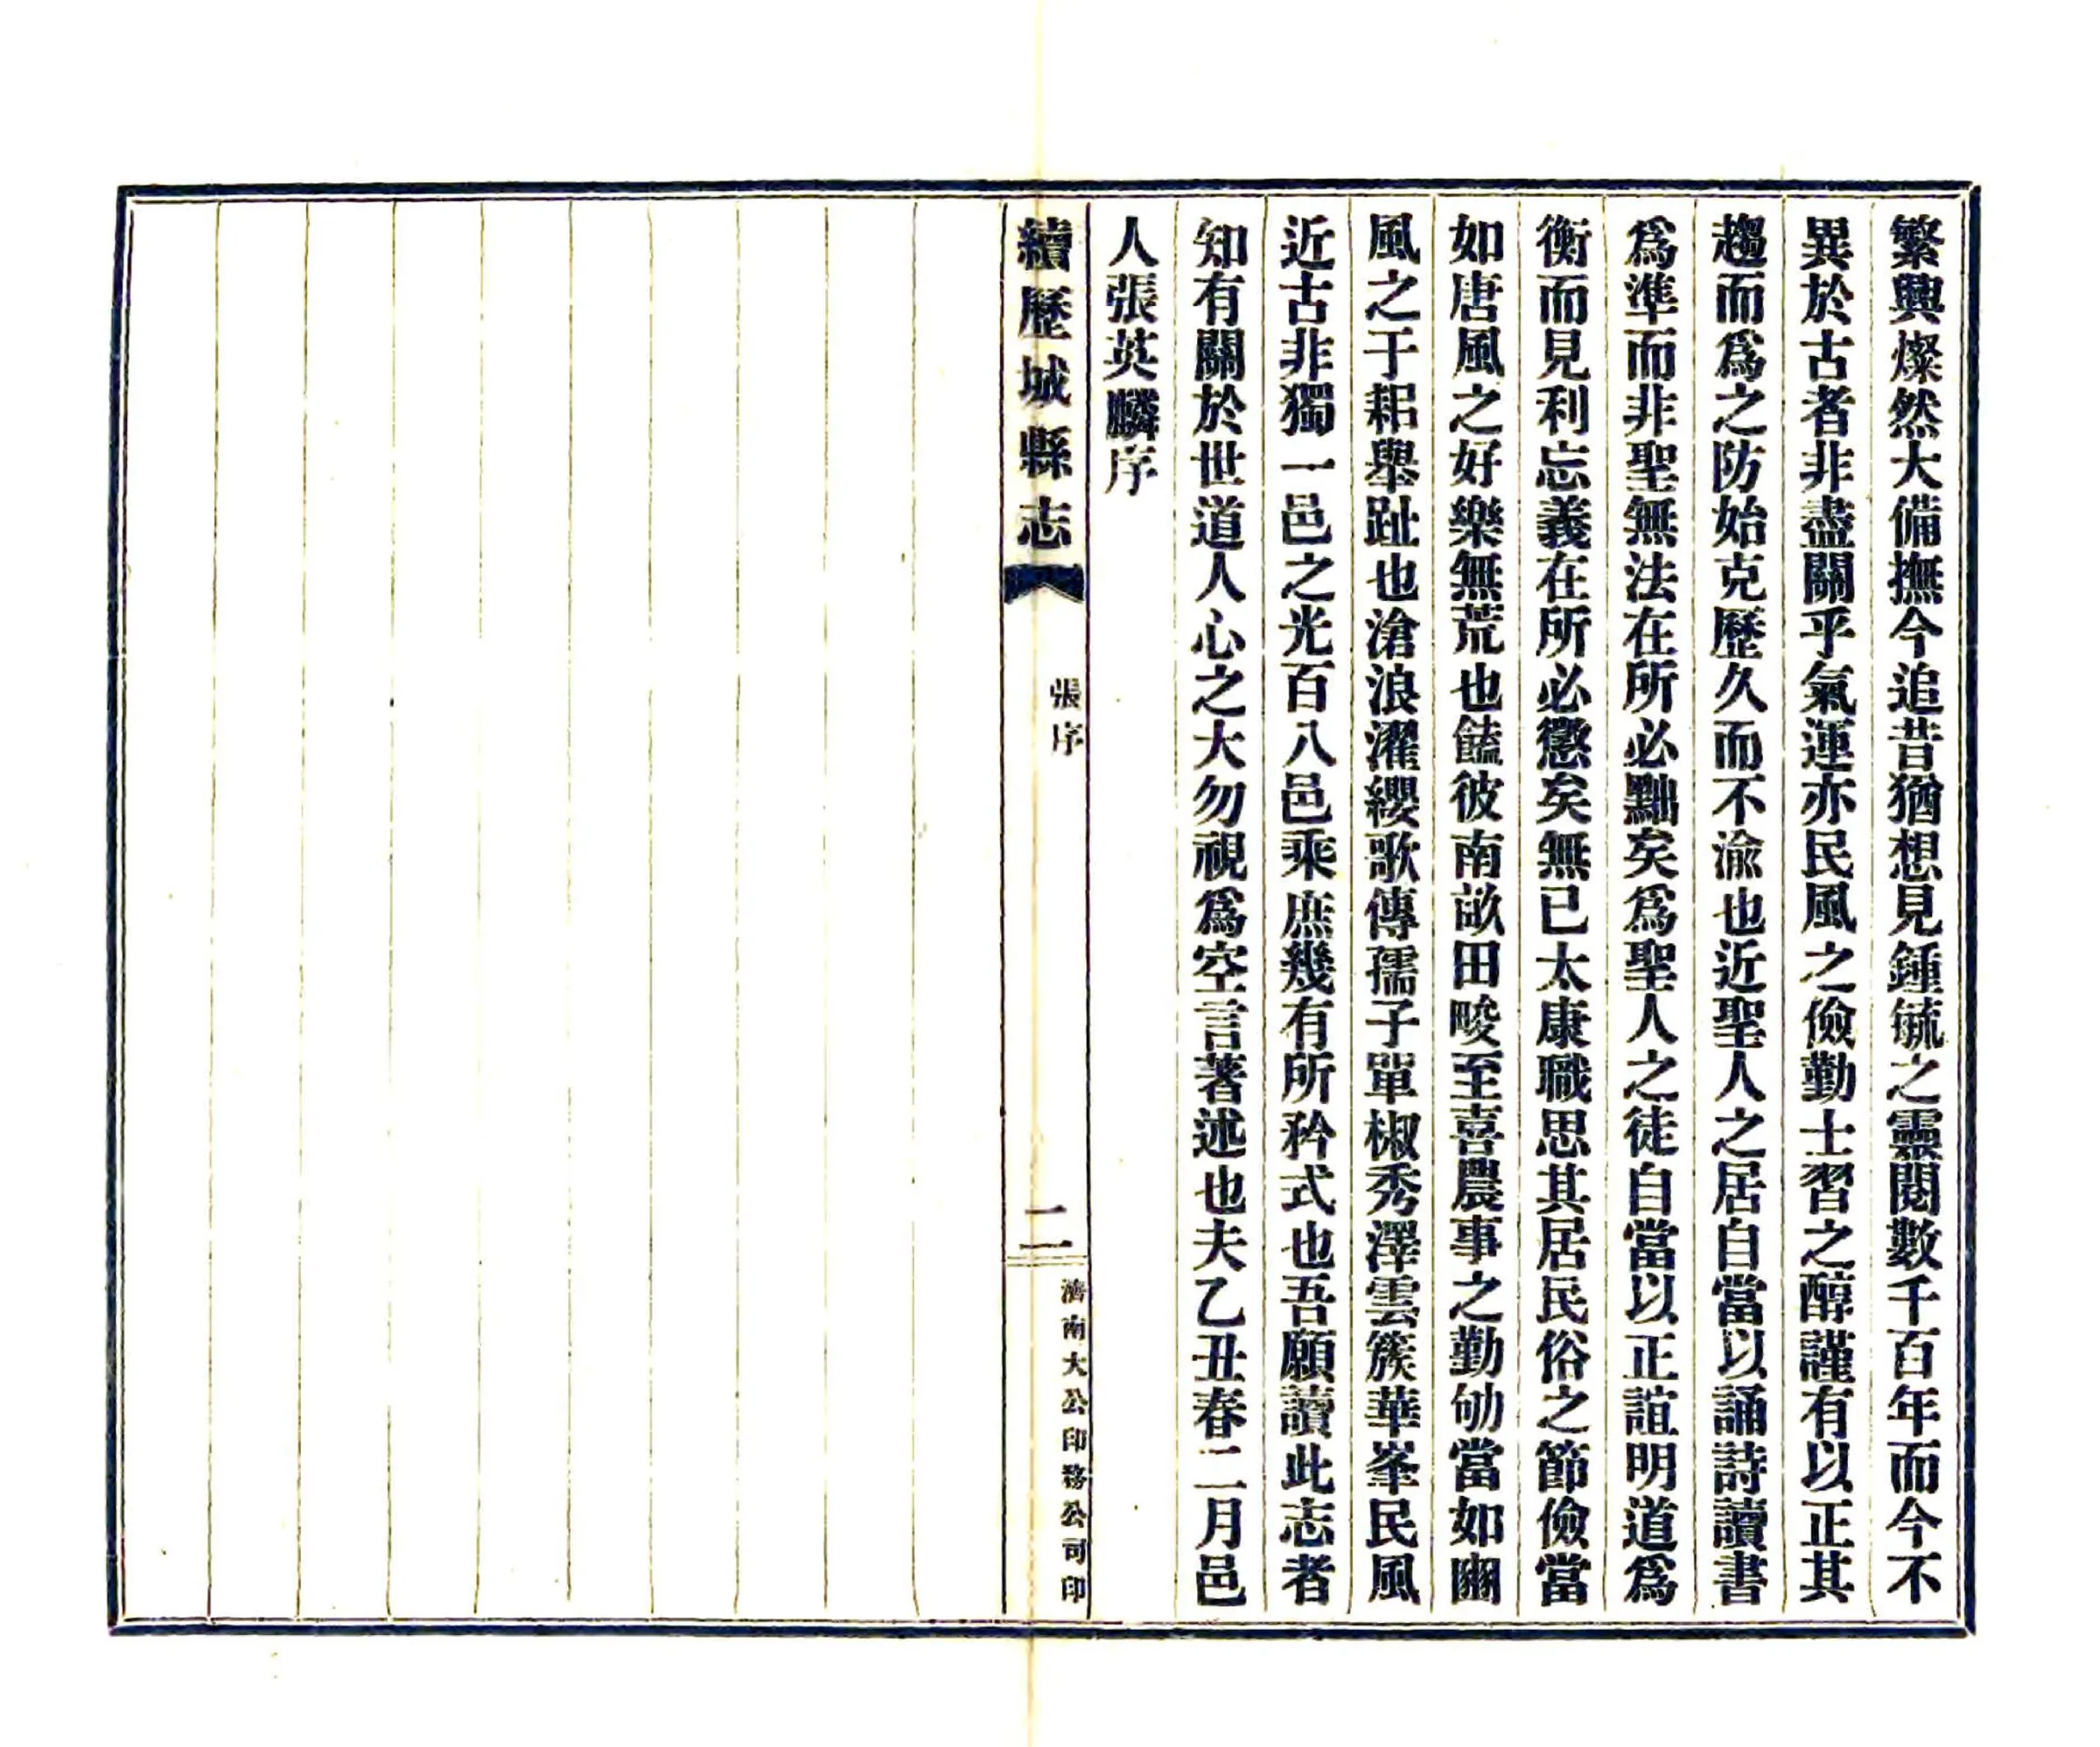 繁興燦然大備撫今追昔猶想見鍾毓之靈閱數千百年而今不
異於古者非盡關乎氣運亦民風之儉勤士習之醇謹有以正其
趨而爲之防始克歷久而不渝也近聖人之居自當以誦詩讀書
爲準而非聖無法在所必黜矣爲聖人之徒自當以正誼明道爲
衡而見利忘義在所必懲矣無已太康職思其居民俗之節儉當
如唐風之好樂無荒也饁彼南畝田畯至喜農事之勤劬當如豳
風之于耜舉趾也滄浪濯纓歌傳孺子單椒秀澤雲簇華峯民風
近古非獨一邑之光百八邑乘庶幾有所矜式也吾願讀此志者
知有關於世道人心之大勿視爲空言著述也夫乙丑春二月邑
人張英麟序
續歷城縣志
張序
二
濟南大公印務公司印